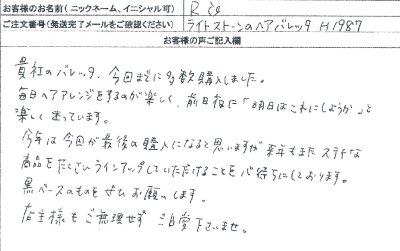 お客様のお名前(ニックネーム、イニシャル可) R
ご注文番号(発送完了メールをご確認ください) ライトストーンのヘアバレッタ H1987
お客様の声ご記入欄
貴社のバレッタ、今回までに多数購入しました。
毎日ヘアアレンジをするのが楽しく、前日夜に「明日はこれにしようか」と
楽しく迷っています。
今年は今回が最後の購入になると思いますが来年もまたステキな
商品をたくさんラインアップしていただけることを心待ちにしております。
黒ベースのものをぜひお願いします。
店主様もご無理せず ご自愛下さいませ。